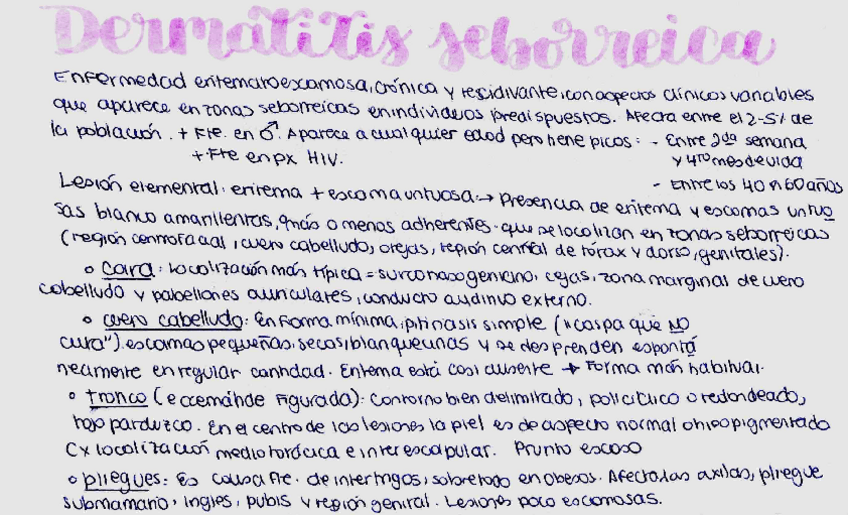 Dermatitis seborreica
Enfermedad eritematoescamosa, crónica y residivante, con aspectos clínicos variables
que aparece en zonas seborreicas en individuos predispuestos. Afecta entre el 2-5% de
la población. + Fte. en ♂. Aparece a cualquier edad pero tiene picos: - Entre 2da semana
y 4to mes de vida
+ Fte en px HIV.
- Entre los 40 n 60 años
Lesión elemental: eritema + escama untuosa → Presencia de eritema y escamas untuo
sas blanco amarillentas, más o menos adherentes que se localizan en zonas seborreicas
(región centrofacial, cuero cabelludo, orejas, región central de tórax y dorso, genitales).
o Cara: localización más típica = surco nasogeniano, cejas, zona marginal de cuero
cabelludo y pabellones auriculares, conducto auditivo externo.
o cuero cabelludo: En forma mínima, pitiriasis simple ("caspa que NO
cura") escamas pequeñas, secas, blanquecinas y se desprenden espontá
neamente en regular cantidad. Eritema está casi ausente → Forma más habitual.
o tronco (eccemátide Figurada): Contorno bien delimitado, policíclico o redondeado,
rojo parduzco. En el centro de las lesiones la piel es de aspecto normal o hipopigmentado
Cx localización mediotorácica e interescapular. Prurito escaso
o pliegues: Es causa fte. de intertrigos, sobretodo en obesos. Afecta las axilas, pliegue
submamario, ingles, pubis y región genital. Lesiones poco escamosas.